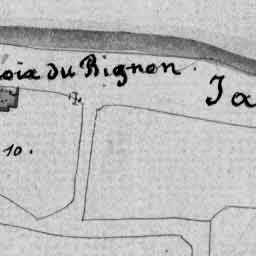 oix du Bignon.
Ja
10.